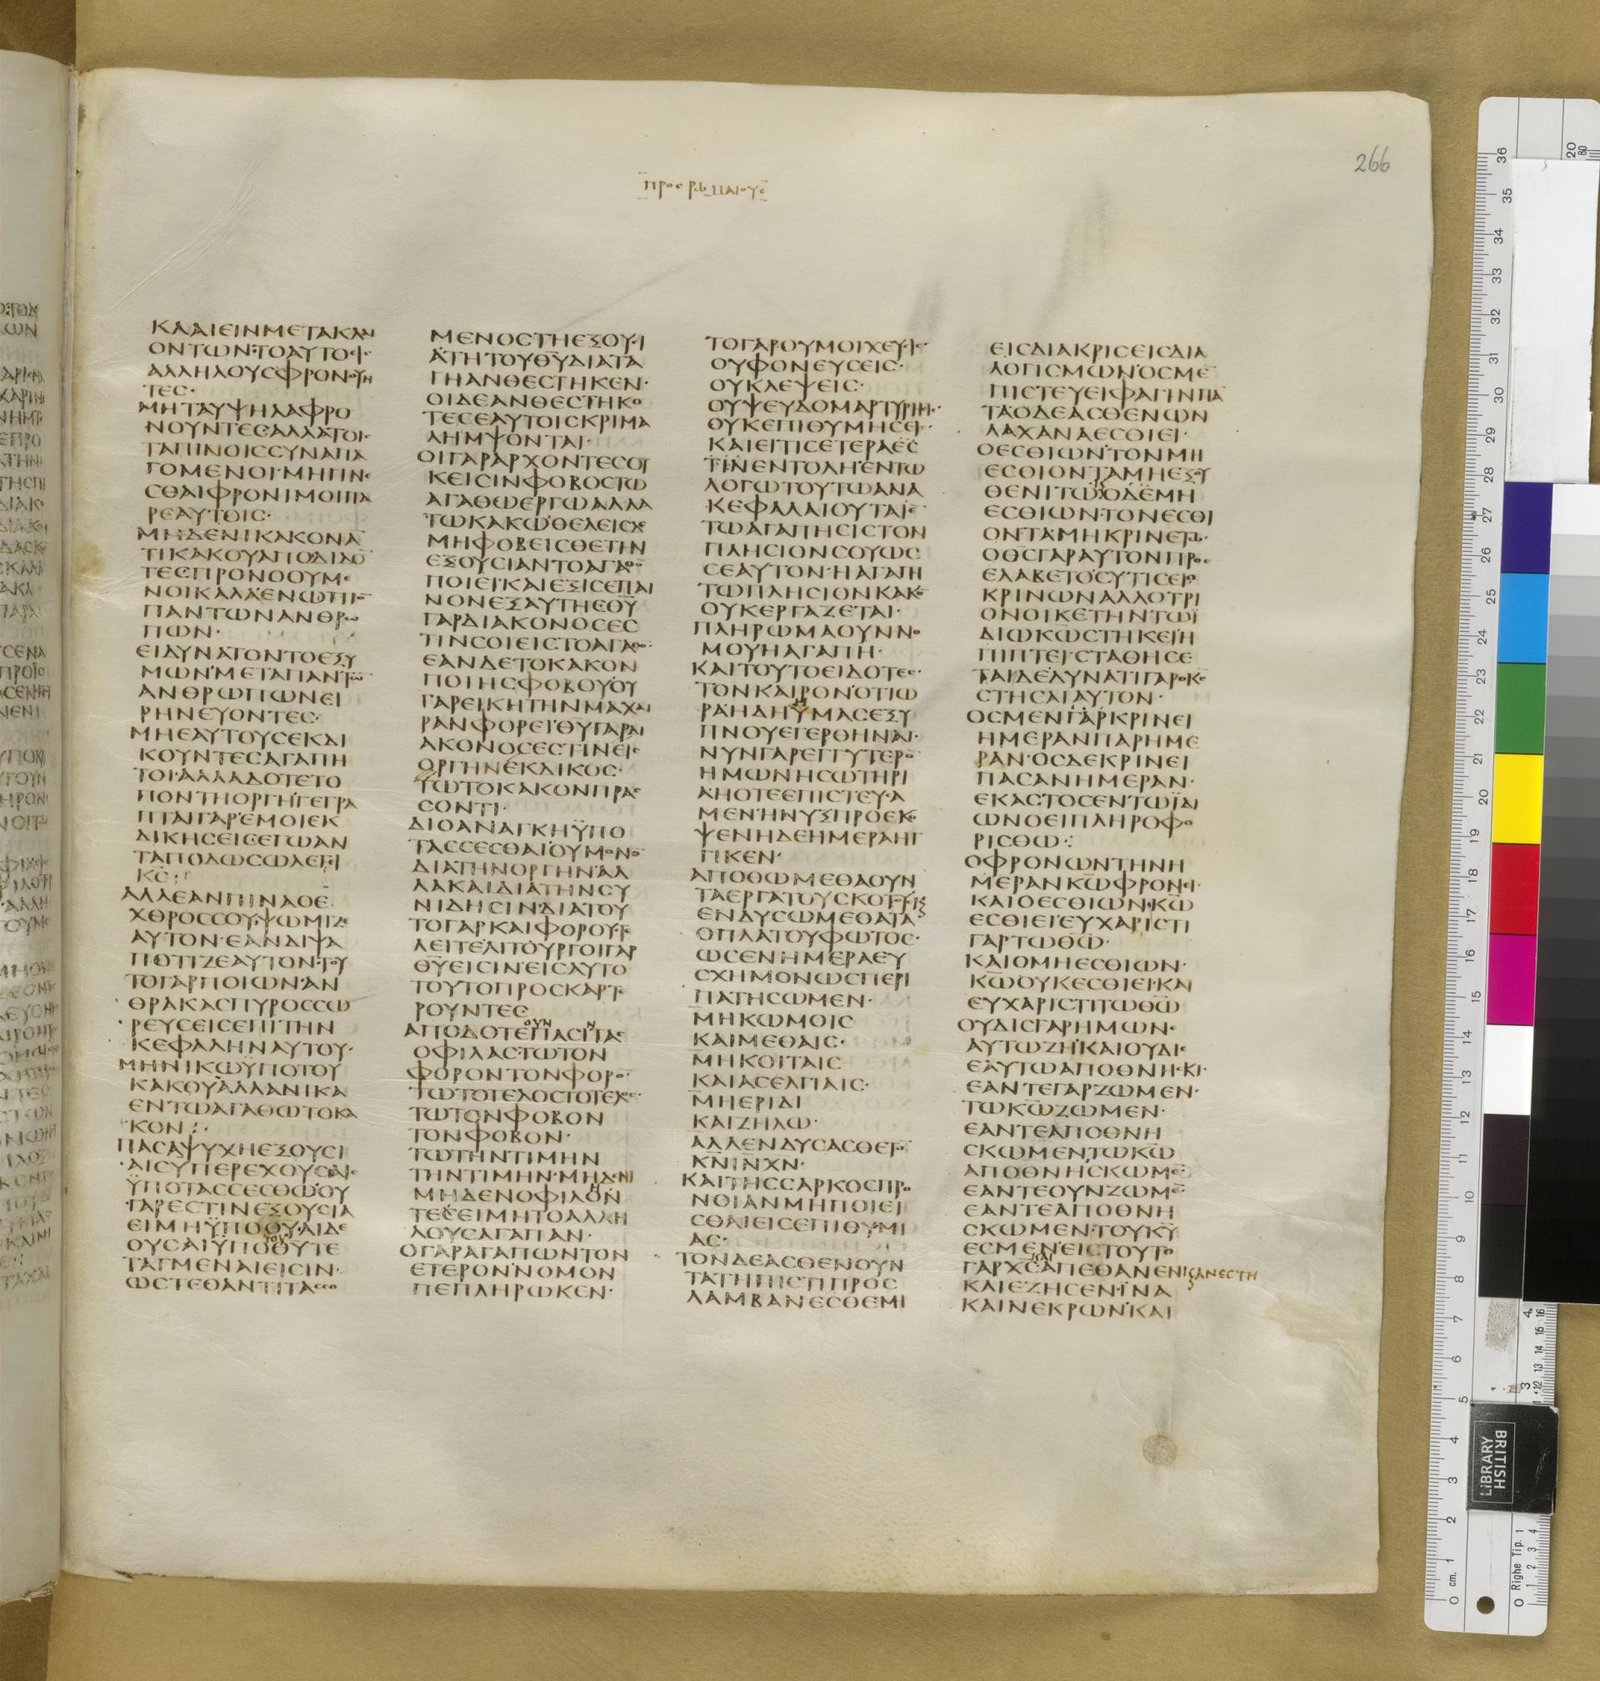 266
ΚΛΑΙΕΙΝΜΕΤΑΚΛΑΙ
ΟΝΤΩΝ·ΤΟΑΥΤΟΕΙϹ
ΑΛΛΗΛΟΥϹΦΡΟΝΟΥΝ
ΤΕϹ·
ΜΗΤΑΥΨΗΛΑΦΡΟ
ΝΟΥΝΤΕϹΑΛΛΑΤΟΙϹ
ΤΑΠΙΝΟΙϹϹΥΝΑΠΑ
ΓΟΜΕΝΟΙ·ΜΗΓΙΝΕ
ϹΘΑΙΦΡΟΝΙΜΟΙΠΑ
ΡΕΑΥΤΟΙϹ·
ΜΗΔΕΝΙΚΑΚΟΝΑ
ΤΙΚΑΚΟΥΑΠΟΔΙΔΟ
ΤΕϹΠΡΟΝΟΟΥΜΕ
ΝΟΙΚΑΛΑΕΝΩΠΙΟ
ΠΑΝΤΩΝΑΝΘΡΩ
ΠΩΝ·
ΕΙΔΥΝΑΤΟΝΤΟΕΞΥ
ΜΩΝΜΕΤΑΠΑΝΤΩ
ΑΝΘΡΩΠΩΝΕΙ
ΡΗΝΕΥΟΝΤΕϹ·
ΜΗΕΑΥΤΟΥϹΕΚΔΙ
ΚΟΥΝΤΕϹΑΓΑΠΗ
ΤΟΙ·ΑΛΛΑΔΟΤΕΤΟ
ΠΟΝΤΗΟΡΓΗΓΕΓΡΑ
ΠΤΑΙΓΑΡΕΜΟΙΕΚ
ΔΙΚΗϹΕΙϹΕΓΩΑΝ
ΤΑΠΟΔΩϹΩΛΕΓΕΙ
ΚϹ
ΑΛΛΕΑΝΠΙΝΑΟΕ
ΧΘΡΟϹϹΟΥΨΩΜΙΖΕ
ΑΥΤΟΝ·ΕΑΝΔΙΨΑ
ΠΟΤΙΖΕΑΥΤΟΝ·ΤΟΥ
ΤΟΓΑΡΠΟΙΩΝ·ΑΝ
ΘΡΑΚΑϹΠΥΡΟϹϹΩ
ΡΕΥϹΕΙϹΕΠΙΤΗΝ
ΚΕΦΑΛΗΝΑΥΤΟΥ·
ΜΗΝΙΚΩΫΠΟΤΟΥ
ΚΑΚΟΥΑΛΛΑΝΙΚΑ
ΕΝΤΩΑΓΑΘΩΤΟΚΑ
ΚΟΝ
ΠΑϹΑΨΥΧΗΕΞΟΥϹΙ
ΑΙϹΥΠΕΡΕΧΟΥϹΑΙϹ
ΫΠΟΤΑϹϹΕϹΘΩΟΥ
ΓΑΡΕϹΤΙΝΕΞΟΥϹΙΑ
ΕΙΜΗΫΠΟΘΥ·ΑΙΔΕ
ΟΥϹΑΙΫΠΟΤΟΥΘΥΤΕ
ΤΑΓΜΕΝΑΙΕΙϹΙΝ·
ΩϹΤΕΟΑΝΤΙΤΑϹϹΟ
ΜΕΝΟϹΤΗΕΞΟΥϹΙ
ΑΤΗΤΟΥΘΥΔΙΑΤΑ
ΓΗΑΝΘΕϹΤΗΚΕΝ·
ΟΙΔΕΑΝΘΕϹΤΗΚΟ
ΤΕϹΕΑΥΤΟΙϹΚΡΙΜΑ
ΛΗΜΨΟΝΤΑΙ·
ΟΙΓΑΡΑΡΧΟΝΤΕϹΟΥ
ΚΕΙϹΙΝΦΟΒΟϹΤΩ
ΑΓΑΘΩΕΡΓΩΑΛΛΑ
ΤΩΚΑΚΩΘΕΛΕΙϹΔΕ
ΜΗΦΟΒΕΙϹΘΕΤΗΝ
ΕΞΟΥϹΙΑΝΤΟΑΓΑΘΟ
ΠΟΙΕΙΚΑΙΕΞΙϹΕΠΑΙ
ΝΟΝΕΞΑΥΤΗϹΘΥ
ΓΑΡΔΙΑΚΟΝΟϹΕϹ
ΤΙΝϹΟΙΕΙϹΤΟΑΓΑΘΟ
ΕΑΝΔΕΤΟΚΑΚΟΝ
ΠΟΙΗϹΦΟΒΟΥΟΥ
ΓΑΡΕΙΚΗΤΗΝΜΑΧΑΙ
ΡΑΝΦΟΡΕΙΘΥΓΑΡΔΙ
ΑΚΟΝΟϹΕϹΤΙΝΕΙϹ
ΟΡΓΗΝΕΚΔΙΚΟϹ·
ΤΩΤΟΚΑΚΟΝΠΡΑϹ
ϹΟΝΤΙ·
ΔΙΟΑΝΑΓΚΗΫΠΟ
ΤΑϹϹΕϹΘΑΙΟΥΜΟΝΟ
ΔΙΑΤΗΝΟΡΓΗΝΑΛ
ΛΑΚΑΙΔΙΑΤΗΝϹΥ
ΝΙΔΗϹΙΝ·ΔΙΑΤΟΥ
ΤΟΓΑΡΚΑΙΦΟΡΟΥϹΤΕ
ΛΕΙΤΕΛΙΤΟΥΡΓΟΙΓΑΡ
ΘΥΕΙϹΙΝΕΙϹΑΥΤΟ
ΤΟΥΤΟΠΡΟϹΚΑΡΤΕ
ΡΟΥΝΤΕϹ
ΑΠΟΔΟΤΕΟΥΝΠΑϹΙΝΤΑϹ
ΟΦΙΛΑϹ·ΤΩΤΟΝ
ΦΟΡΟΝΤΟΝΦΟΡΟ·
ΤΩΤΟΤΕΛΟϹΤΟΤΕΛΟϹ·
ΤΩΤΟΝΦΟΒΟΝ
ΤΟΝΦΟΒΟΝ·
ΤΩΤΗΝΤΙΜΗΝ
ΤΗΝΤΙΜΗΝ·ΜΗΔΕΝΙ
ΜΗΔΕΝΟΦΙΛΟΝ
ΤΕϹΕΙΜΗΤΟΑΛΛΗ
ΛΟΥϹΑΓΑΠΑΝ·
ΟΓΑΡΑΓΑΠΩΝΤΟΝ
ΕΤΕΡΟΝΝΟΜΟΝ
ΠΕΠΛΗΡΩΚΕΝ·
ΤΟΓΑΡΟΥΜΟΙΧΕΥϹΕΙϹ
ΟΥΦΟΝΕΥϹΕΙϹ·
ΟΥΚΛΕΨΕΙϹ·
ΟΥΨΕΥΔΟΜΑΡΤΥΡΗϹΙϹ·
ΟΥΚΕΠΙΘΥΜΗϹΕΙϹ
ΚΑΙΕΙΤΙϹΕΤΕΡΑΕϹ
ΤΙΝΕΝΤΟΛΗΕΝΤΩ
ΛΟΓΩΤΟΥΤΩΑΝΑ
ΚΕΦΑΛΑΙΟΥΤΑΙΕ
ΤΩΑΓΑΠΗϹΙϹΤΟΝ
ΠΛΗϹΙΟΝϹΟΥΩϹ
ϹΕΑΥΤΟΝ·ΗΑΓΑΠΗ
ΤΩΠΛΗϹΙΟΝΚΑΚΟ
ΟΥΚΕΡΓΑΖΕΤΑΙ·
ΠΛΗΡΩΜΑΟΥΝΝΟ
ΜΟΥΗΑΓΑΠΗ·
ΚΑΙΤΟΥΤΟΕΙΔΟΤΕϹ
ΤΟΝΚΑΙΡΟΝΟΤΙΩ
ΡΑΗΔΗΥΜΑϹΕΞΥ
ΠΝΟΥΕΓΕΡΘΗΝΑΙ·
ΝΥΝΓΑΡΕΓΓΥΤΕΡΟ
ΗΜΩΝΗϹΩΤΗΡΙ
ΑΗΟΤΕΕΠΙϹΤΕΥϹΑ
ΜΕΝΗΝΥΞΠΡΟΕΚΟ
ΨΕΝΗΔΕΗΜΕΡΑΗΓ
ΓΙΚΕΝ·
ΑΠΟΘΩΜΕΘΑΟΥΝ
ΤΑΕΡΓΑΤΟΥϹΚΟΤΟΥϹ
ΕΝΔΥϹΩΜΕΘΑΤΑ
ΟΠΛΑΤΟΥΦΩΤΟϹ·
ΩϹΕΝΗΜΕΡΑΕΥ
ϹΧΗΜΟΝΩϹΠΕΡΙ
ΠΑΤΗϹΩΜΕΝ·
ΜΗΚΩΜΟΙϹ
ΚΑΙΜΕΘΑΙϹ·
ΜΗΚΟΙΤΑΙϹ
ΚΑΙΑϹΕΛΓΙΑΙϹ·
ΜΗΕΡΙΔΙ
ΚΑΙΖΗΛΩ·
ΑΛΛΕΝΔΥϹΑϹΘΕΤΟ
ΚΝΙΝΧΝ·
ΚΑΙΤΗϹϹΑΡΚΟϹΠΡΟ
ΝΟΙΑΝΜΗΠΟΙΕΙ
ϹΘΑΙΕΙϹΕΠΙΘΥΜΙ
ΑϹ·
ΤΟΝΔΕΑϹΘΕΝΟΥΝ
ΤΑΤΗΠΙϹΤΙΠΡΟϹ
ΛΑΜΒΑΝΕϹΘΕΜΙ
ΕΙϹΔΙΑΚΡΙϹΕΙϹΔΙΑ
ΛΟΓΙϹΜΩΝ·ΟϹΜΕ
ΠΙϹΤΕΥΕΙΦΑΓΙΝΠΑ
ΤΑΟΔΕΑϹΘΕΝΩΝ
ΛΑΧΑΝΑΕϹΘΙΕΙ·
ΟΕϹΘΙΩΝΤΟΝΜΗ
ΕϹΘΙΟΝΤΑΜΗΕΞΟΥ
ΘΕΝΙΤΩΟΔΕΜΗ
ΕϹΘΙΩΝ·ΤΟΝΕϹΘΙ
ΟΝΤΑΜΗΚΡΙΝΕΤΩ·
ΟΘϹΓΑΡΑΥΤΟΝΠΡΟϹ
ΕΛΑΒΕΤΟϹΥΤΙϹΕΙΟ
ΚΡΙΝΩΝΑΛΛΟΤΡΙ
ΟΝΟΙΚΕΤΗΝΤΩΪ
ΔΙΩΚΩϹΤΗΚΕΙΗ
ΠΙΠΤΕΙ·ϹΤΑΘΗϹΕ
ΤΑΙΔΕΔΥΝΑΤΙΓΑΡΟΚϹ
ϹΤΗϹΑΙΑΥΤΟΝ·
ΟϹΜΕΝΓΑΡΚΡΙΝΕΙ
ΗΜΕΡΑΝΠΑΡΗΜΕ
ΡΑΝ·ΟϹΔΕΚΡΙΝΕΙ
ΠΑϹΑΝΗΜΕΡΑΝ·
ΕΚΑϹΤΟϹΕΝΤΩΪΔΙ
ΩΝΟΕΙΠΛΗΡΟΦΟ
ΡΙϹΘΩ
ΟΦΡΟΝΩΝΤΗΝΗ
ΜΕΡΑΝΚΩΦΡΟΝΕΙ·
ΚΑΙΟΕϹΘΙΩΝ·ΚΩ
ΕϹΘΙΕΙΕΥΧΑΡΙϹΤΙ
ΓΑΡΤΩΘΩ·
ΚΑΙΟΜΗΕϹΘΙΩΝ·
ΚΩΟΥΚΕϹΘΙΕΙ·ΚΑΙ
ΕΥΧΑΡΙϹΤΙΤΩΘΩ
ΟΥΔΙϹΓΑΡΗΜΩΝ·
ΑΥΤΩΖΗΚΑΙΟΥΔΙϹ
ΕΑΥΤΩΑΠΟΘΝΗϹΚΙ·
ΕΑΝΤΕΓΑΡΖΩΜΕΝ·
ΤΩΚΩΖΩΜΕΝ·
ΕΑΝΤΕΑΠΟΘΝΗ
ϹΚΩΜΕΝΤΩΚΩ
ΑΠΟΘΝΗϹΚΩΜΕ
ΕΑΝΤΕΟΥΝΖΩΜΕ
ΕΑΝΤΕΑΠΟΘΝΗ
ϹΚΩΜΕΝ·ΤΟΥΚΥ
ΕϹΜΕΝΕΙϹΤΟΥΤΟ
ΓΑΡΧϹΚΑΙΑΠΕΘΑΝΕΝΚΑΝΕϹΤΗ
ΚΑΙΕΖΗϹΕΝ·ΪΝΑ
ΚΑΙΝΕΚΡΩΝΚΑΙ
BRITISH
LIBRARY